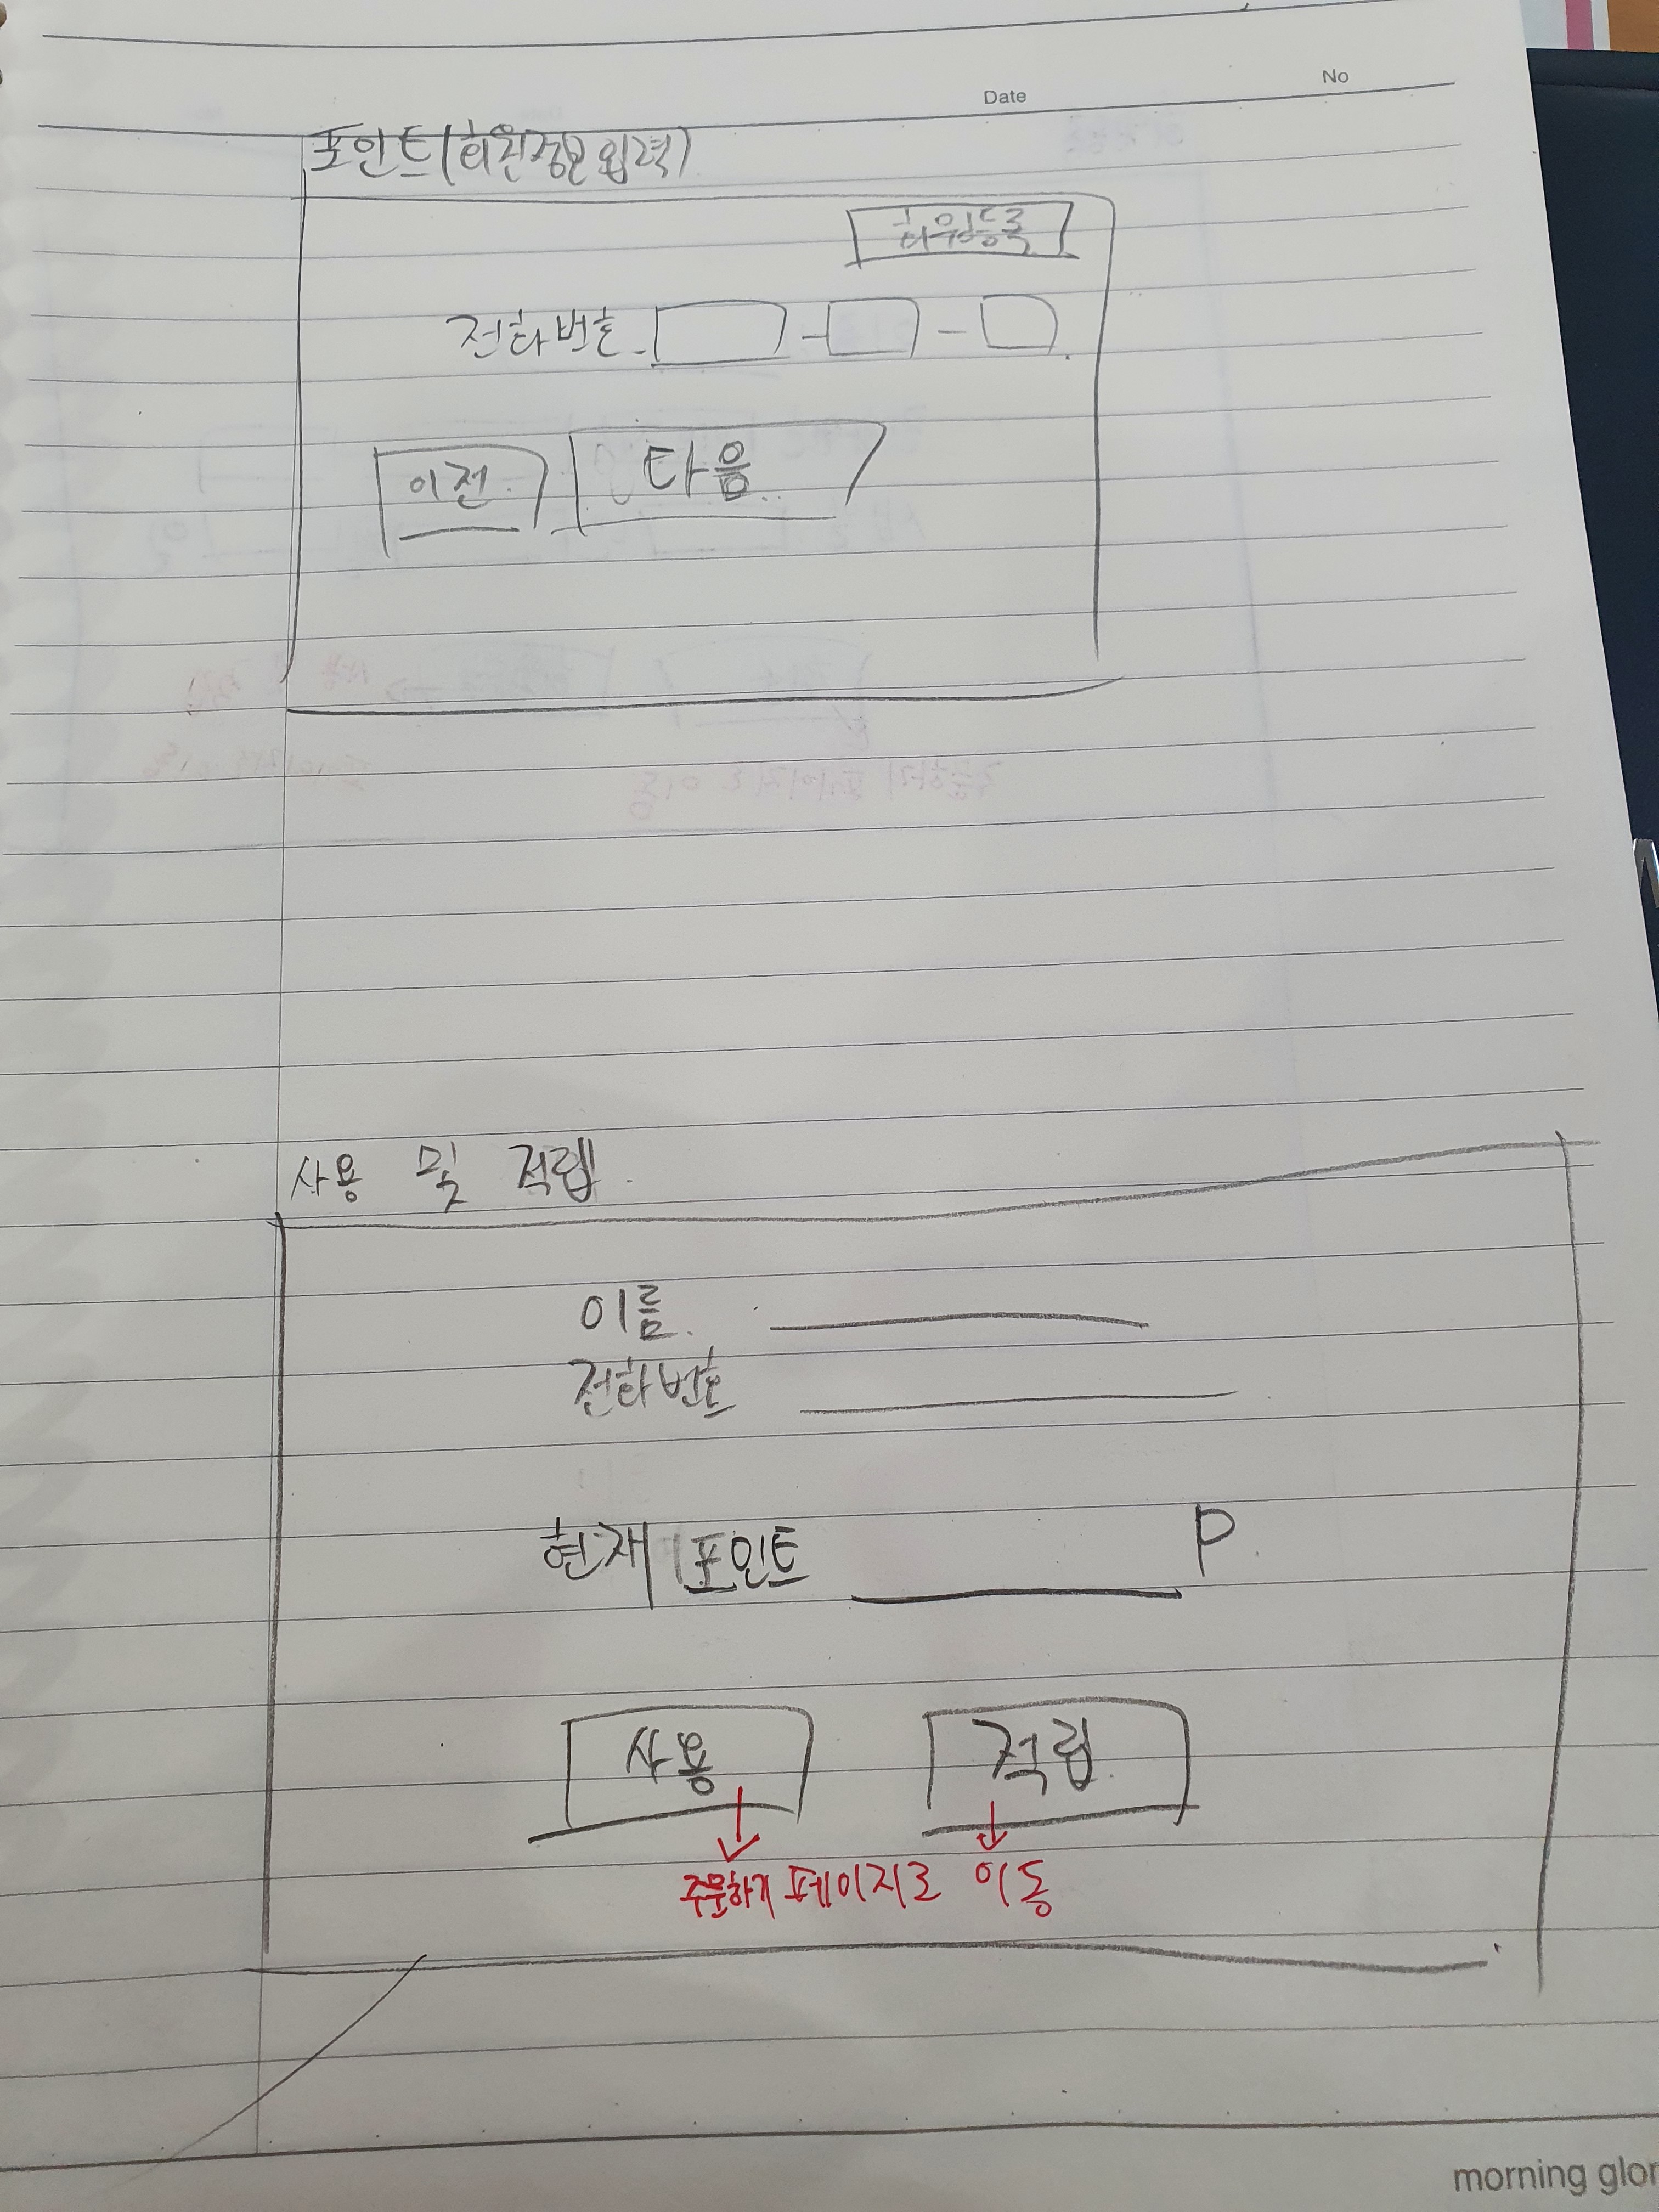 Date
No
포인트(회원정보입력)
회원등록
전화번호 - -
이전 다음
사용 및 적립
이름
전화번호
현재 포인트 P
사용 적립
주문하기 페이지로 이동
morning glor